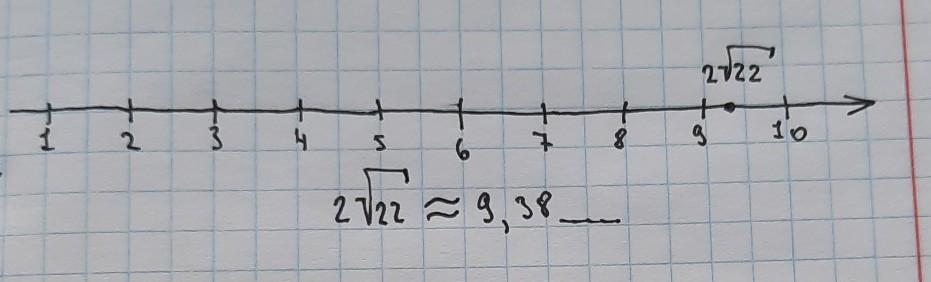 2√22
1 2 3 4 5 6 7 8 9 10
2√22 ≈ 9,38___